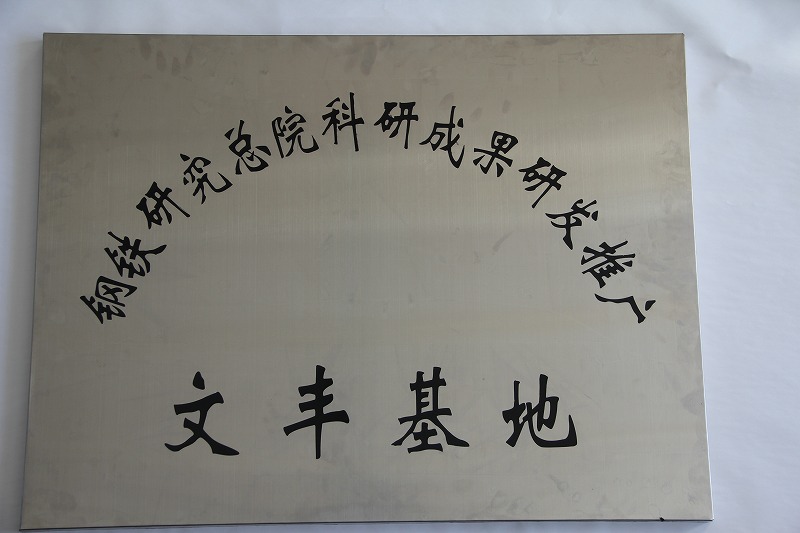 钢铁研究总院科研成果研发推广
文丰基地